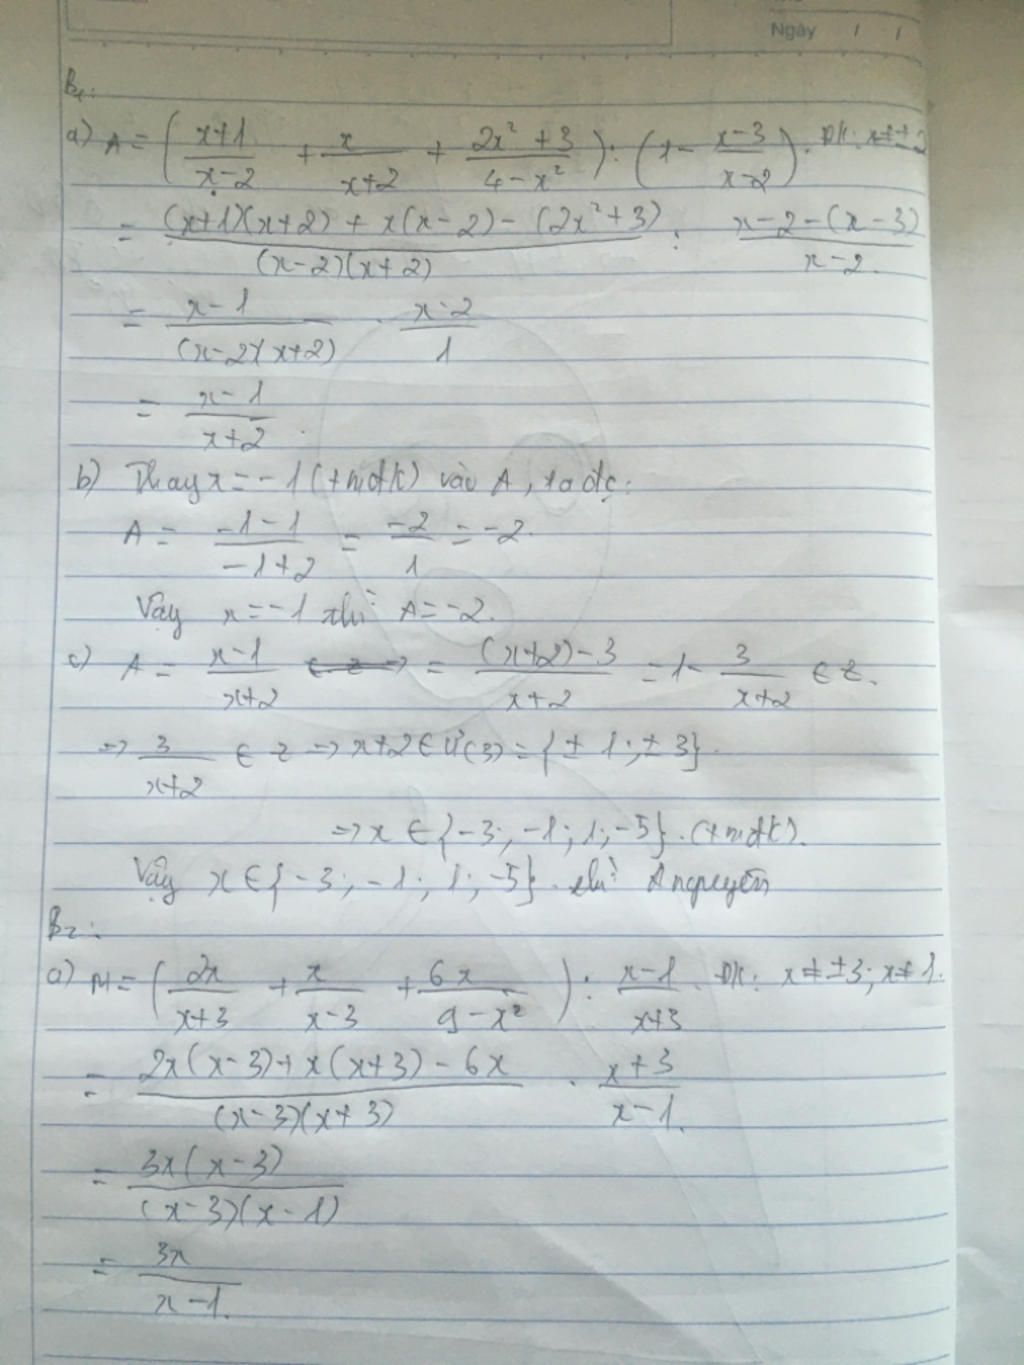 Ngày / /
B1:
a) A = ( (x+1)/(x-2) + x/(x+2) + (2x² + 3)/(4-x²) ) : ( 1 - (x-3)/(x-2) ). ĐK: x ≠ ± 2
= ((x+1)(x+2) + x(x-2) - (2x²+3))/((x-2)(x+2)) : (x-2-(x-3))/(x-2).
= (x-1)/((x-2)(x+2)) . (x-2)/1
= (x-1)/(x+2) .
b) Thay x = -1 (tmđk) vào A, ta đc:
A = (-1-1)/(-1+2) = (-2)/1 = -2.
Vậy x = -1 thì A = -2.
c) A = (x-1)/(x+2) = ((x+2)-3)/(x+2) = 1 - 3/(x+2) ∈ Z.
=> 3/(x+2) ∈ Z => x+2 ∈ Ư(3) = {± 1; ± 3}.
=> x ∈ {-3; -1; 1; -5}. (tmđk).
Vậy x ∈ {-3; -1; 1; -5}. thì A nguyên
B2:
a) M = ( 2x/(x+3) + x/(x-3) + 6x/(9-x²) ) : (x-1)/(x+3). ĐK: x ≠ ±3; x ≠ 1.
= (2x(x-3) + x(x+3) - 6x)/((x-3)(x+3)) . (x+3)/(x-1).
= 3x(x-3)/((x-3)(x-1))
= 3x/(x-1).